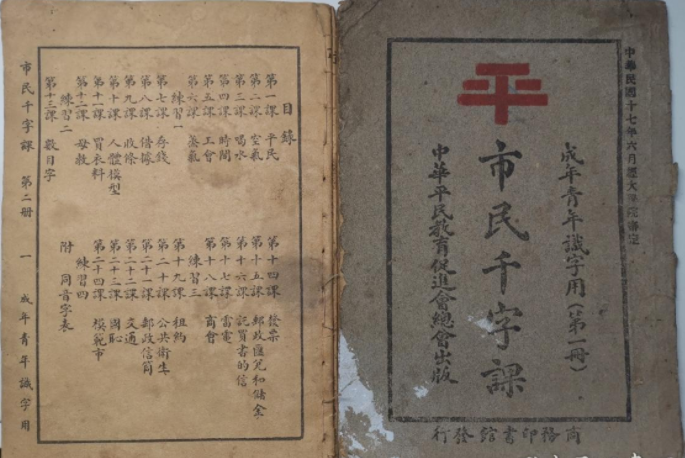 中華民國十七年六月經大學院審定
成年青年識字用(第一冊)
平
市民千字課
中華平民教育促進會總會出版
商務印書館發行
目錄
第一課 平民
第二課 空氣
第三課 喝水
第四課 時間
第五課 工會
第六課
練習一
第七課 存錢
第八課 借據
第九課 收條
第十課 人體模型
第十一課 買衣料
第十二課 母教
練習二
第十三課 數目字
第十四課 發票
第十五課 郵政匯兌和儲金
第十六課 託買書的信
第十七課 雷電
第十八課 商會
練習三
第十九課 租約
第二十課 公共衛生
第二十一課 郵政信筒
第二十二課 交通
第二十三課 國恥
第二十四課 模範市
練習四
附 同音字表
市民千字課 第二冊 一 成年青年識字用